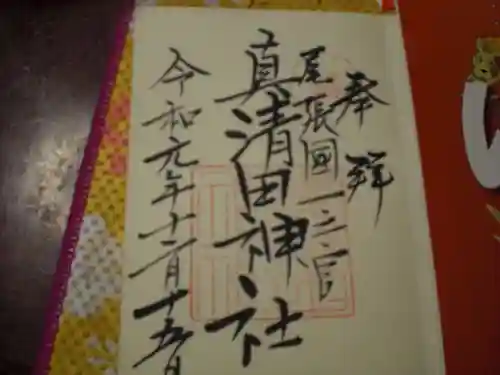 奉拝
尾張國一之宮
真清田神社
令和元年十一月十五日